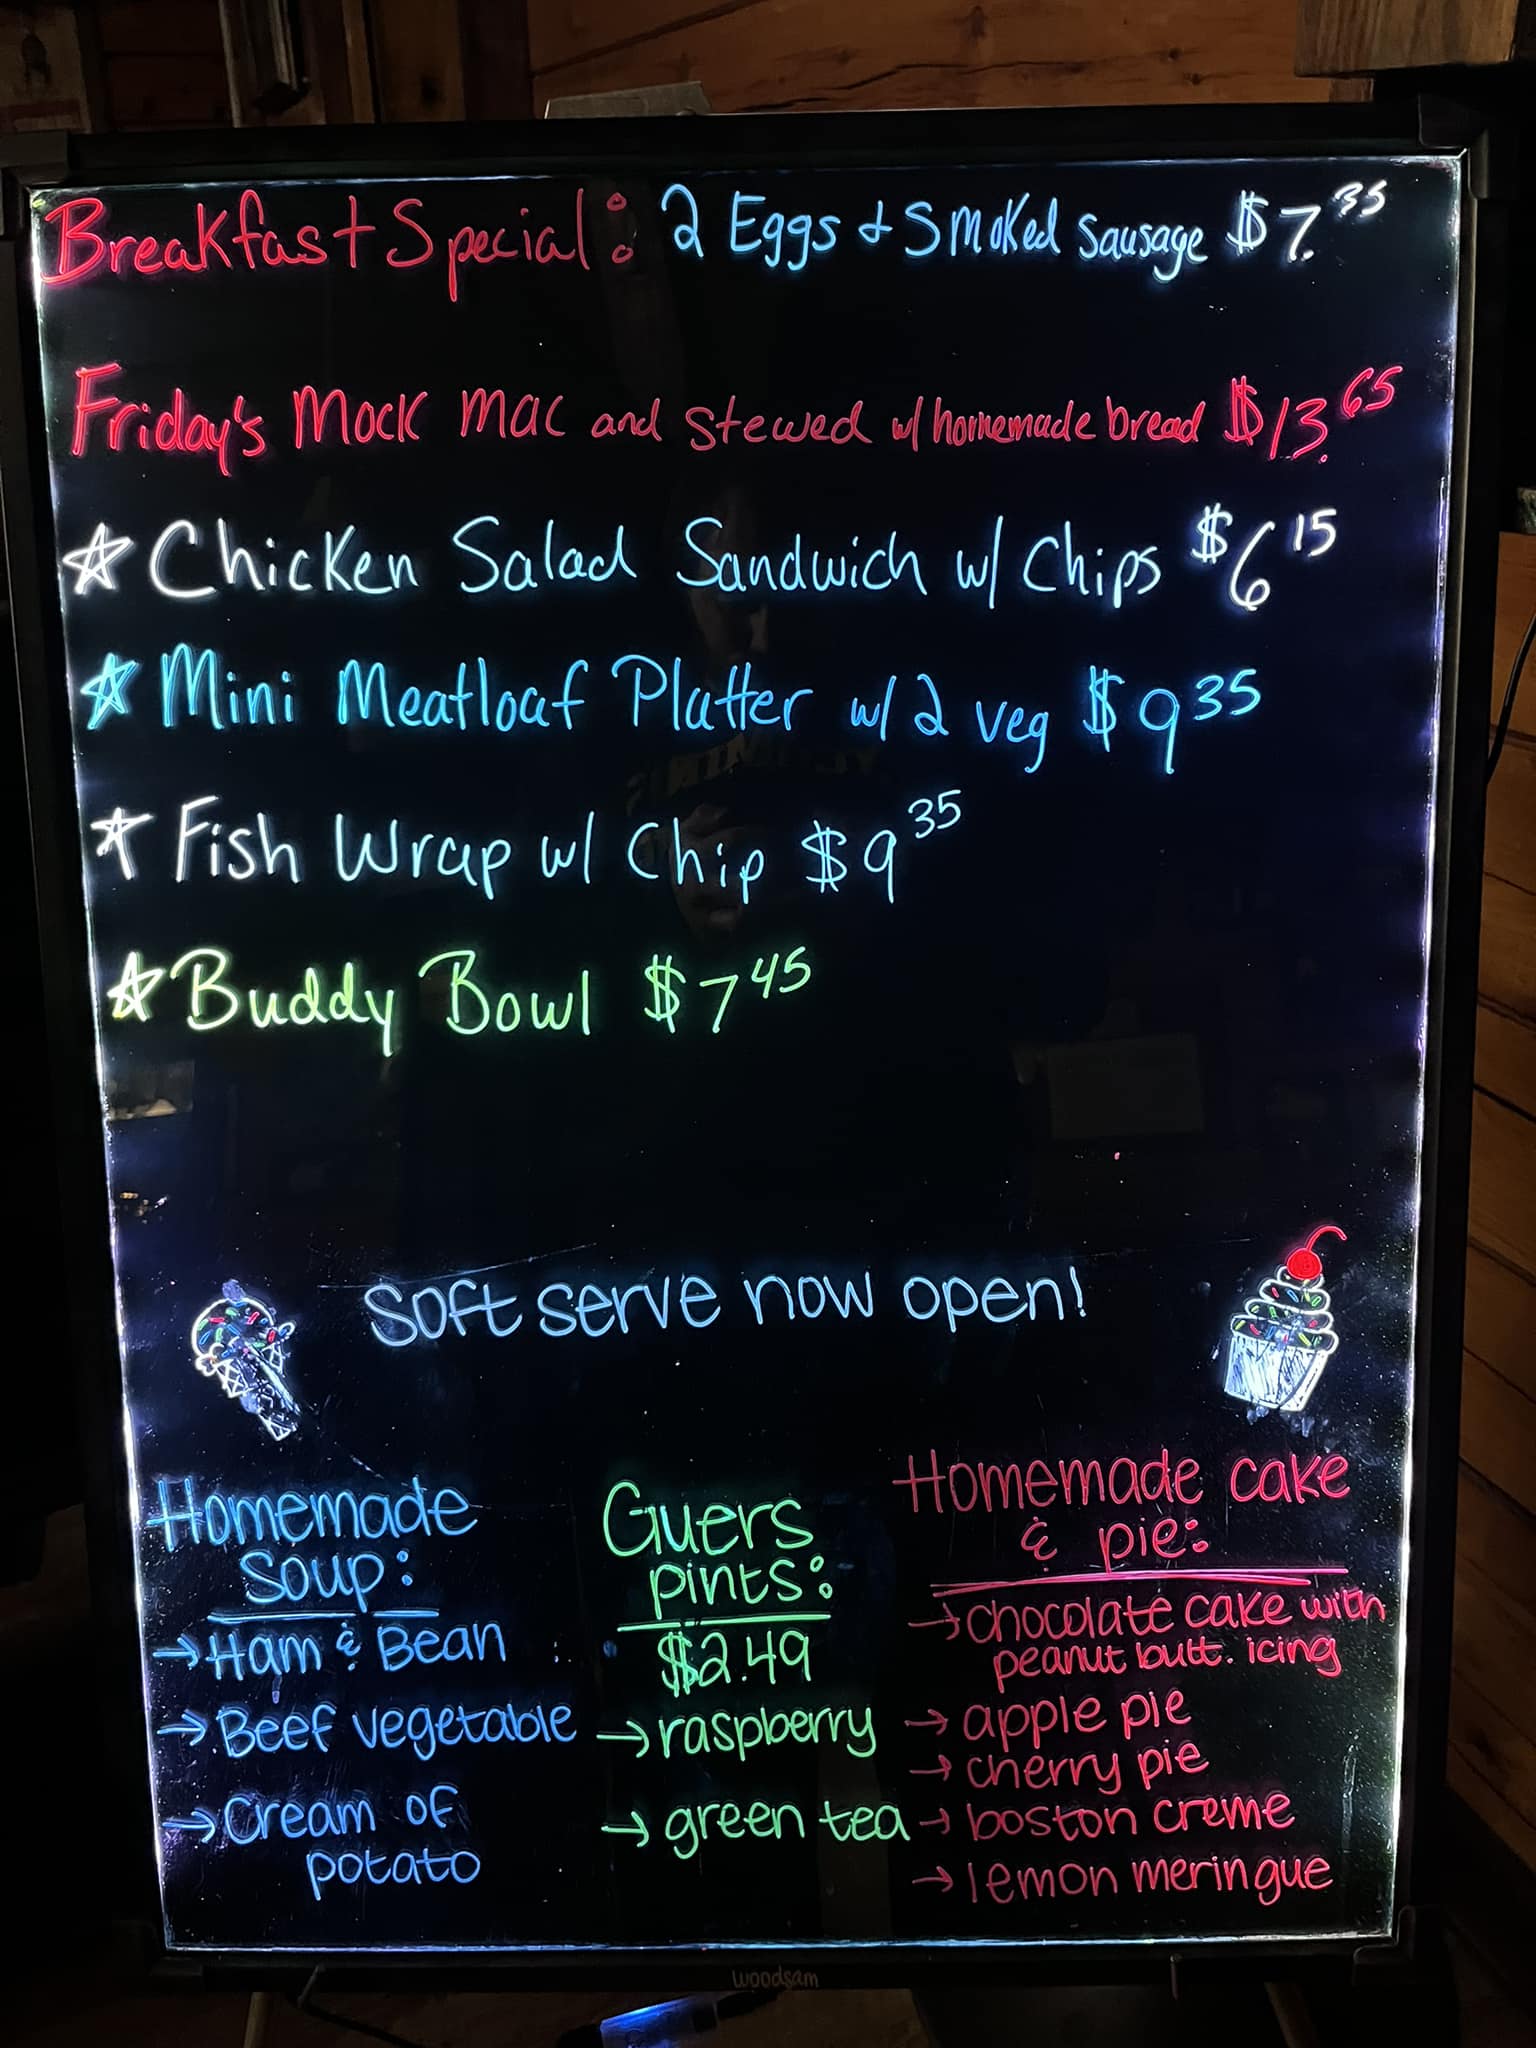 Breakfast Special: 2 Eggs & Smoked Sausage $7.35
Friday's Mock Mac and Stewed w/ homemade bread $13.65
☆ Chicken Salad Sandwich w/ Chips $6 15
☆ Mini Meatloaf Platter w/ 2 veg $9 35
☆ Fish Wrap w/ Chip $9 35
☆ Buddy Bowl $7 45
Soft serve now open!
Homemade
soup:
→ Ham & Bean
→ Beef vegetable
→ Cream of
potato
Guers
pints:
$2.49
→ raspberry
→ green tea
Homemade cake
& pie:
→ chocolate cake with
peanut butt. icing
→ apple pie
→ cherry pie
→ boston creme
→ lemon meringue
woodsam